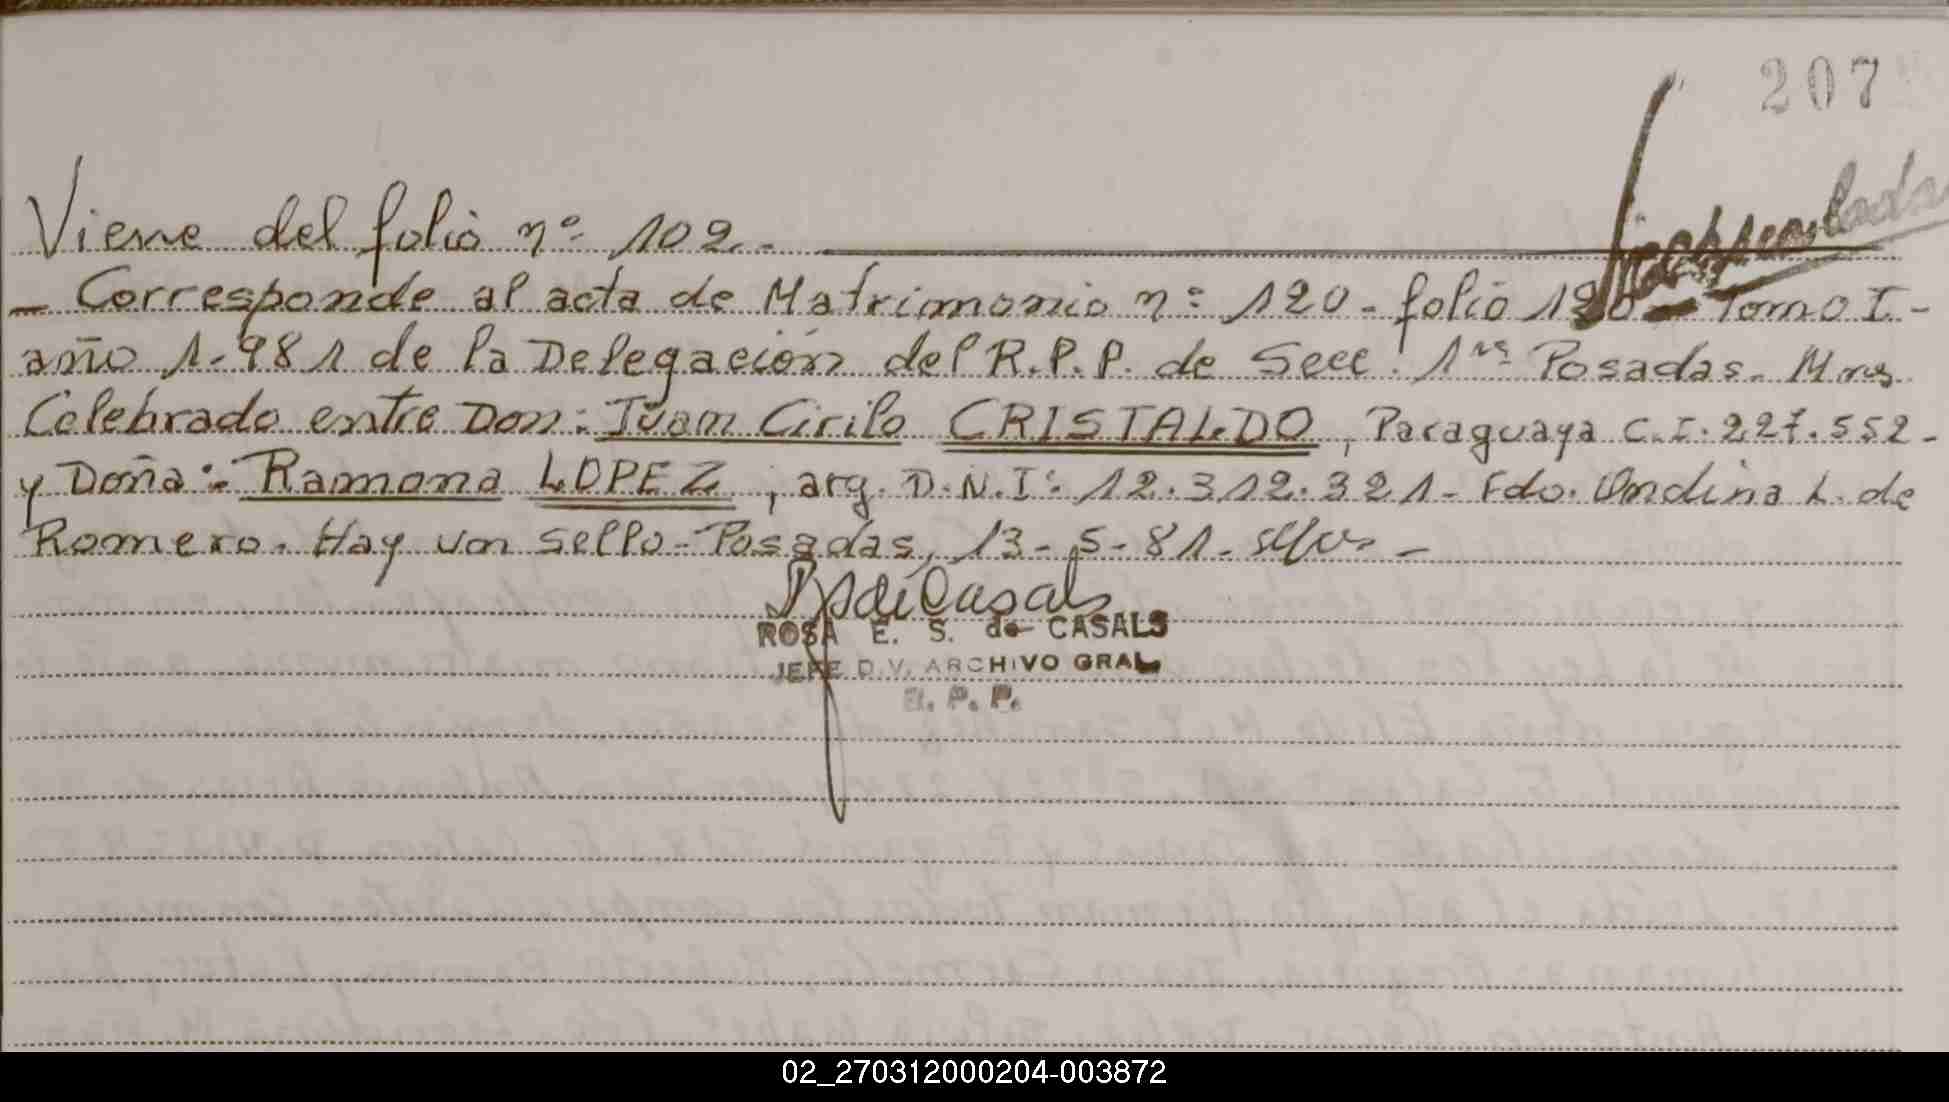 207
Viene del folio nº 102.-
- Corresponde al acta de Matrimonio nº 120- folio 120 - Tomo I-
año 1.981 de la Delegación del R.P.P. de Secc. 1ra Posadas. Mnes
Celebrado entre Don: Juan Cirilo CRISTALDO, Paraguaya C.I. 227.552-
y Doña: Ramona LOPEZ, arg. D.N.I: 12.312.321- Fdo. Ondina L. de
Romero. Hay un sello- Posadas, 13-5-81-
de Casals
ROSA E. S. de CASALS
JEFE D.V. ARCHIVO GRAL
R. P. P.
02_270312000204-003872